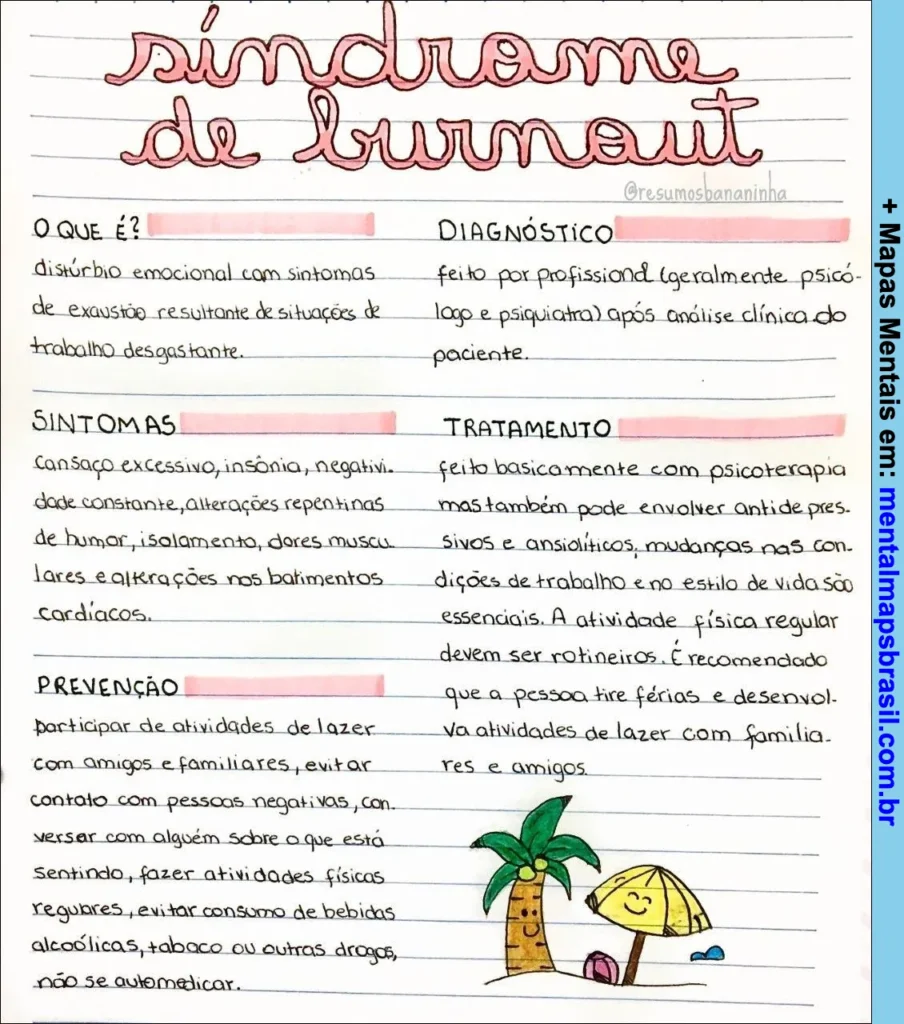 síndrome
de burnout
@resumosbananinha
O QUE É?
distúrbio emocional com sintomas
de exaustão resultante de situações de
trabalho desgastante.
SINTOMAS
cansaço excessivo, insônia, negativi-
dade constante, alterações repentinas
de humor, isolamento, dores muscu
lares e alterações nos batimentos
cardíacos.
PREVENÇÃO
participar de atividades de lazer
com amigos e familiares, evitar
contato com pessoas negativas, con-
versar com alguém sobre o que está
sentindo, fazer atividades físicas
regulares, evitar consumo de bebidas
alcoólicas, tabaco ou outras drogas,
não se automedicar.
DIAGNÓSTICO
feito por profissional (geralmente psicó-
logo e psiquiatra) após análise clínica do
paciente.
TRATAMENTO
feito basicamente com psicoterapia
mas também pode envolver antidepres-
sivos e ansiolíticos, mudanças nas con-
dições de trabalho e no estilo de vida são
essenciais. A atividade física regular
devem ser rotineiros. É recomendado
que a pessoa tire férias e desenvol-
va atividades de lazer com familia-
res e amigos.
+ Mapas Mentais em: mentalmapsbrasil.com.br